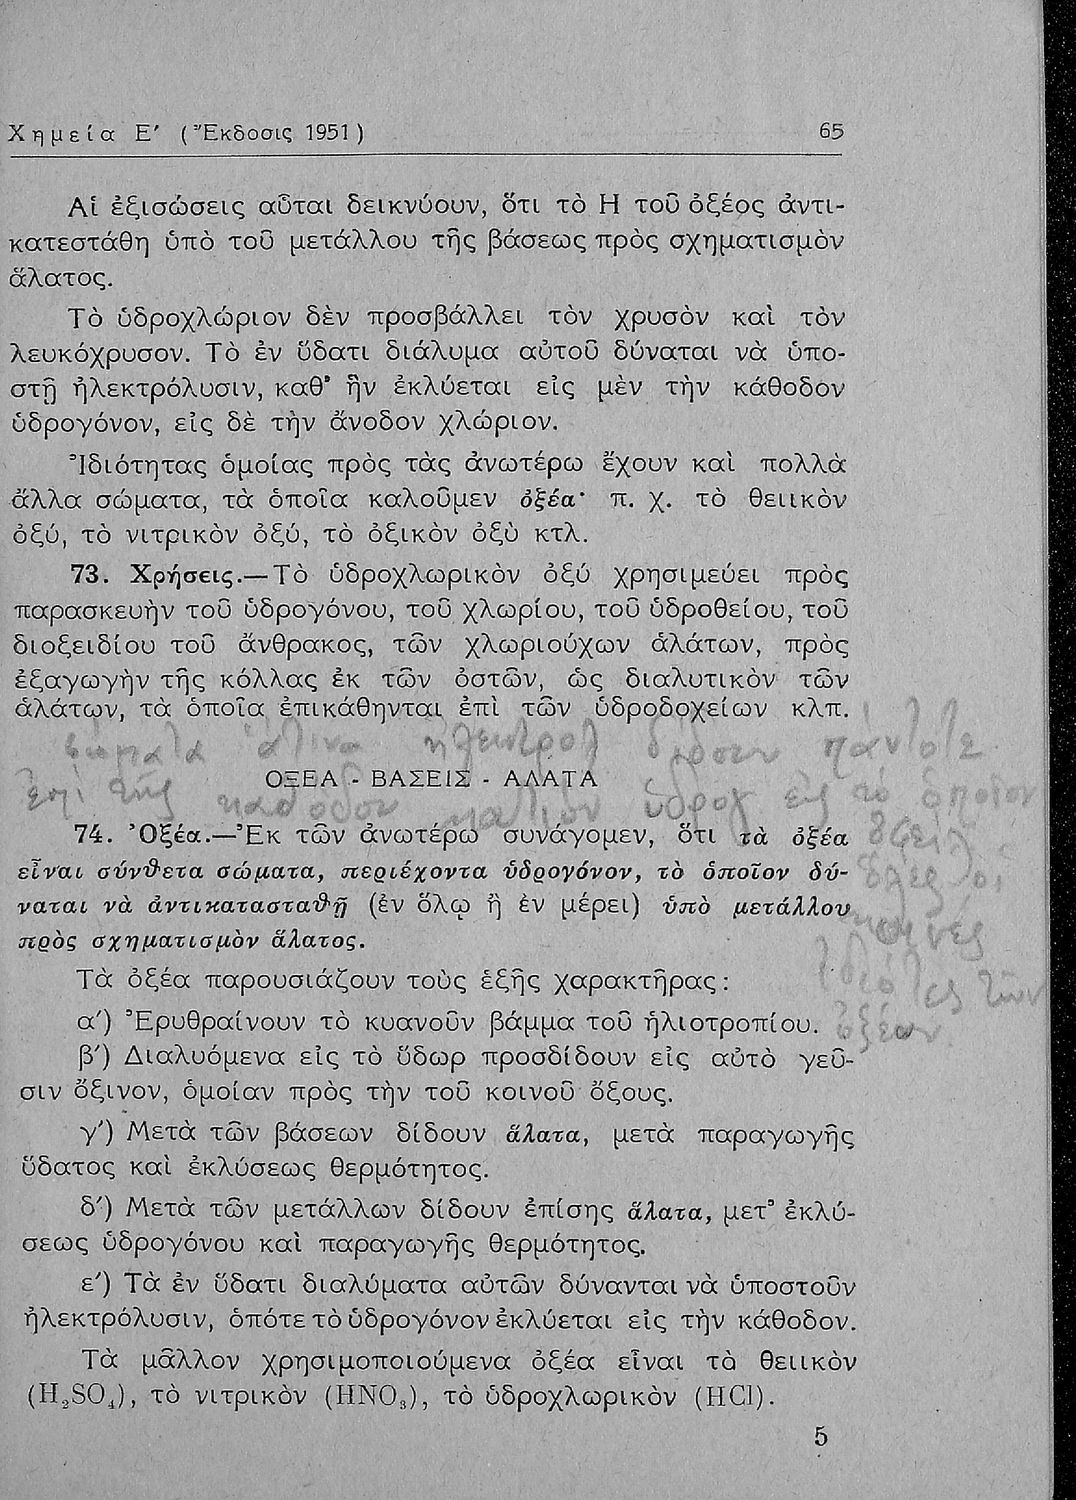 Χημεία Ε′ (Ἔκδοσις 1951)	65
Αἱ ἐξισώσεις αὗται δεικνύουν, ὅτι τὸ Η τοῦ ὀξέος ἀντι-
κατεστάθη ὑπὸ τοῦ μετάλλου τῆς βάσεως πρὸς σχηματισμὸν
ἅλατος.
Τὸ ὑδροχλώριον δὲν προσβάλλει τὸν χρυσὸν καὶ τὸν
λευκόχρυσον. Τὸ ἐν ὕδατι διάλυμα αὐτοῦ δύναται νὰ ὑπο-
στῇ ἠλεκτρόλυσιν, καθ᾿ ἣν ἐκλύεται εἰς μὲν τὴν κάθοδον
ὑδρογόνον, εἰς δὲ τὴν ἄνοδον χλώριον.
Ἰδιότητας ὁμοίας πρὸς τὰς ἀνωτέρω ἔχουν καὶ πολλὰ
ἄλλα σώματα, τὰ ὁποῖα καλοῦμεν ὀξέα· π. χ. τὸ θειικὸν
ὀξύ, τὸ νιτρικὸν ὀξύ, τὸ ὀξικὸν ὀξὺ κτλ.
73. Χρήσεις.—Τὸ ὑδροχλωρικὸν ὀξύ χρησιμεύει πρὸς
παρασκευὴν τοῦ ὑδρογόνου, τοῦ χλωρίου, τοῦ ὑδροθείου, τοῦ
διοξειδίου τοῦ ἄνθρακος, τῶν χλωριούχων ἁλάτων, πρὸς
ἐξαγωγὴν τῆς κόλλας ἐκ τῶν ὀστῶν, ὡς διαλυτικὸν τῶν
ἁλάτων, τὰ ὁποῖα ἐπικάθηνται ἐπὶ τῶν ὑδροδοχείων κλπ.
σώματα ἅτινα ἠλεκτρολ δίδουν πάντοτε
ΟΞΕΑ - ΒΑΣΕΙΣ - ΑΛΑΤΑ
ἐπὶ τῆς κάθοδον κατιὸν ὑδρογ εἰς τὸ ὁποῖον
74. Ὀξέα.—Ἐκ τῶν ἀνωτέρω συνάγομεν, ὅτι τὰ ὀξέα
εἶναι σύνθετα σώματα, περιέχοντα ὑδρογόνον, τὸ ὁποῖον δύ-
ναται νὰ ἀντικατασταθῇ (ἐν ὅλῳ ἢ ἐν μέρει) ὑπὸ μετάλλου
πρὸς σχηματισμὸν ἅλατος.
ὀφείλ
ὅλες οἱ
κοινές
ἰδιότ ες τῶν
ὀξέων.
Τὰ ὀξέα παρουσιάζουν τοὺς ἑξῆς χαρακτῆρας:
α′) Ἐρυθραίνουν τὸ κυανοῦν βάμμα τοῦ ἡλιοτροπίου.
β′) Διαλυόμενα εἰς τὸ ὕδωρ προσδίδουν εἰς αὐτὸ γεῦ-
σιν ὄξινον, ὁμοίαν πρὸς τὴν τοῦ κοινοῦ ὄξους.
γ′) Μετὰ τῶν βάσεων δίδουν ἅλατα, μετὰ παραγωγῆς
ὕδατος καὶ ἐκλύσεως θερμότητος.
δ′) Μετὰ τῶν μετάλλων δίδουν ἐπίσης ἅλατα, μετ᾿ ἐκλύ-
σεως ὑδρογόνου καὶ παραγωγῆς θερμότητος.
ε′) Τὰ ἐν ὕδατι διαλύματα αὐτῶν δύνανται νὰ ὑποστοῦν
ἠλεκτρόλυσιν, ὁπότε τὸ ὑδρογόνον ἐκλύεται εἰς τὴν κάθοδον.
Τὰ μᾶλλον χρησιμοποιούμενα ὀξέα εἶναι τὸ θειικὸν
(H₂SO₄), τὸ νιτρικὸν (HNO₃), τὸ ὑδροχλωρικὸν (HCl).
5